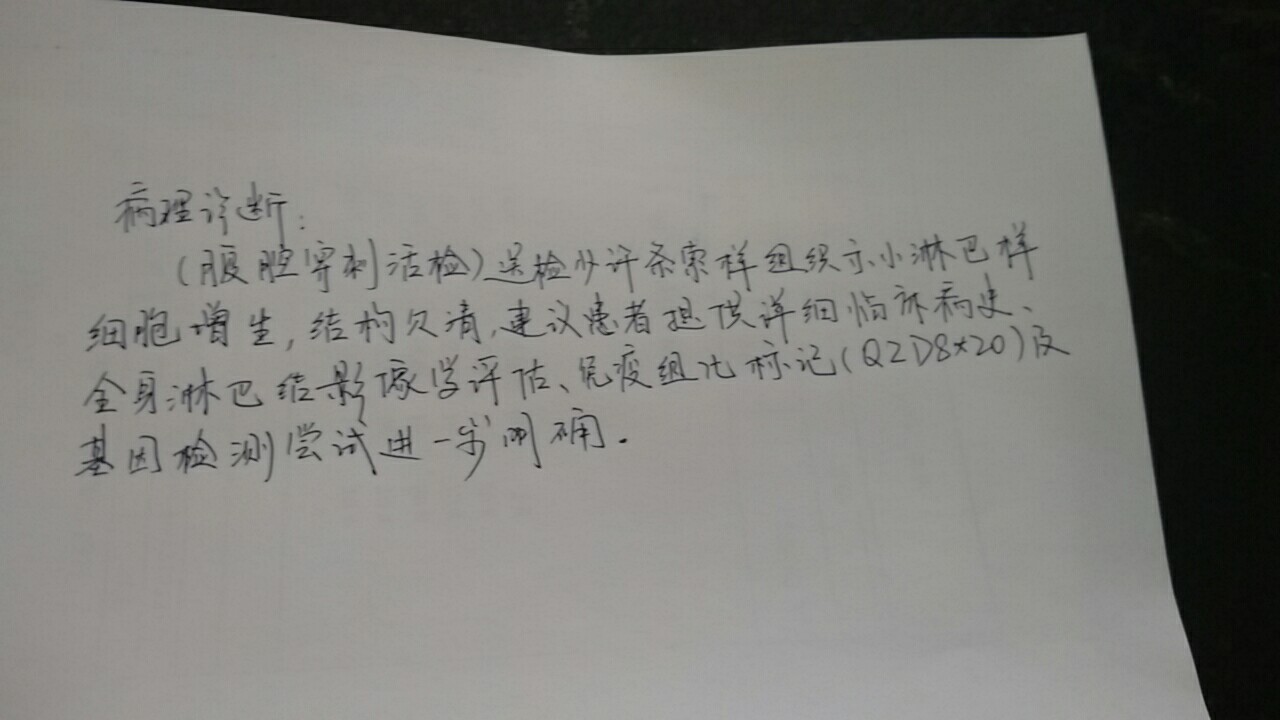 病理诊断:
(腹腔穿刺活检)送检少许条索样组织示小淋巴样
细胞增生,结构欠清,建议患者提供详细临床病史、
全身淋巴结影像学评估、免疫组化标记(QZD8×20)及
基因检测尝试进一步明确.